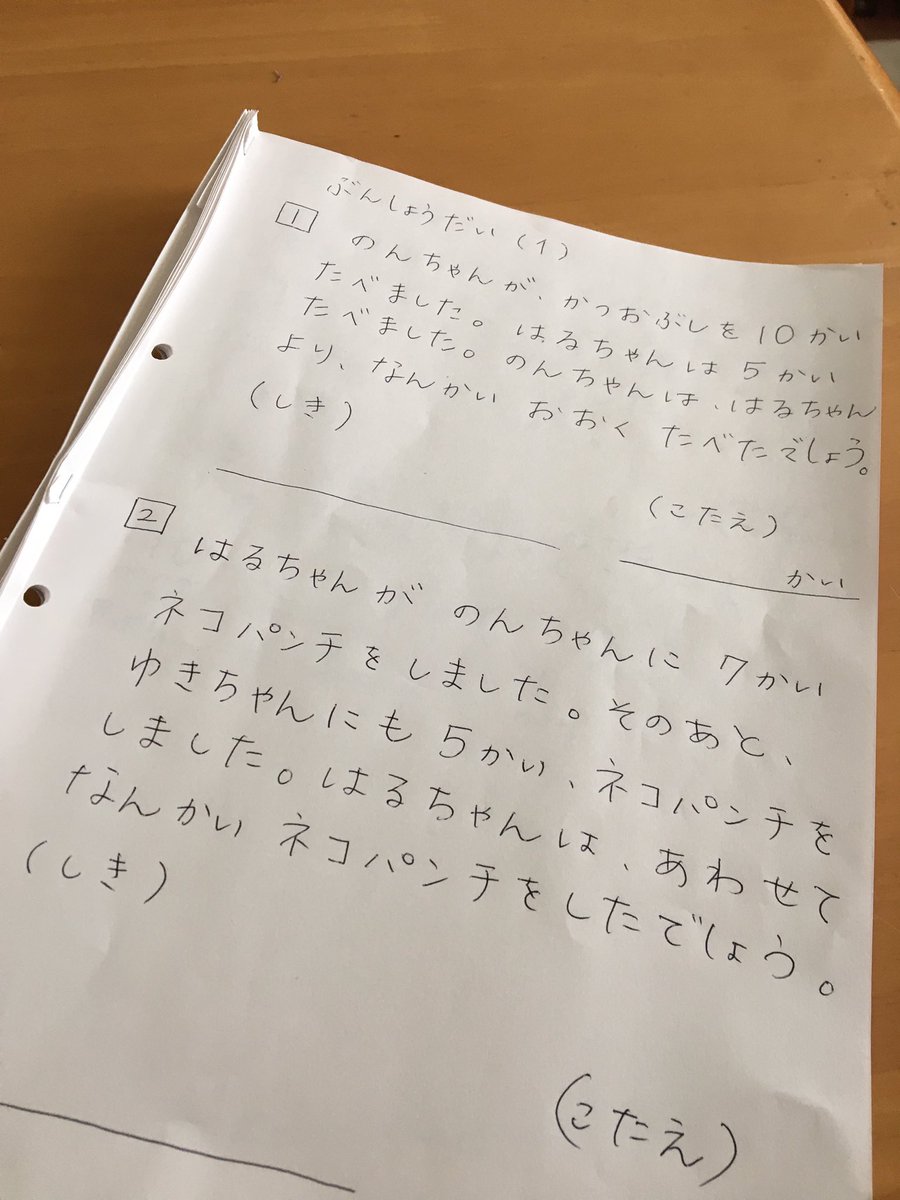 ぶんしょうだい(1)
1 のんちゃんが、かつおぶしを10かい
たべました。はるちゃんは 5かい
たべました。のんちゃんは、はるちゃん
より、なんかい おおく たべたでしょう。
(しき)
(こたえ)
かい
2 はるちゃんが のんちゃんに 7かい
ネコパンチをしました。そのあと、
ゆきちゃんにも 5かい、ネコパンチを
しました。はるちゃんは、あわせて
なんかい ネコパンチをしたでしょう。
(しき)
(こたえ)